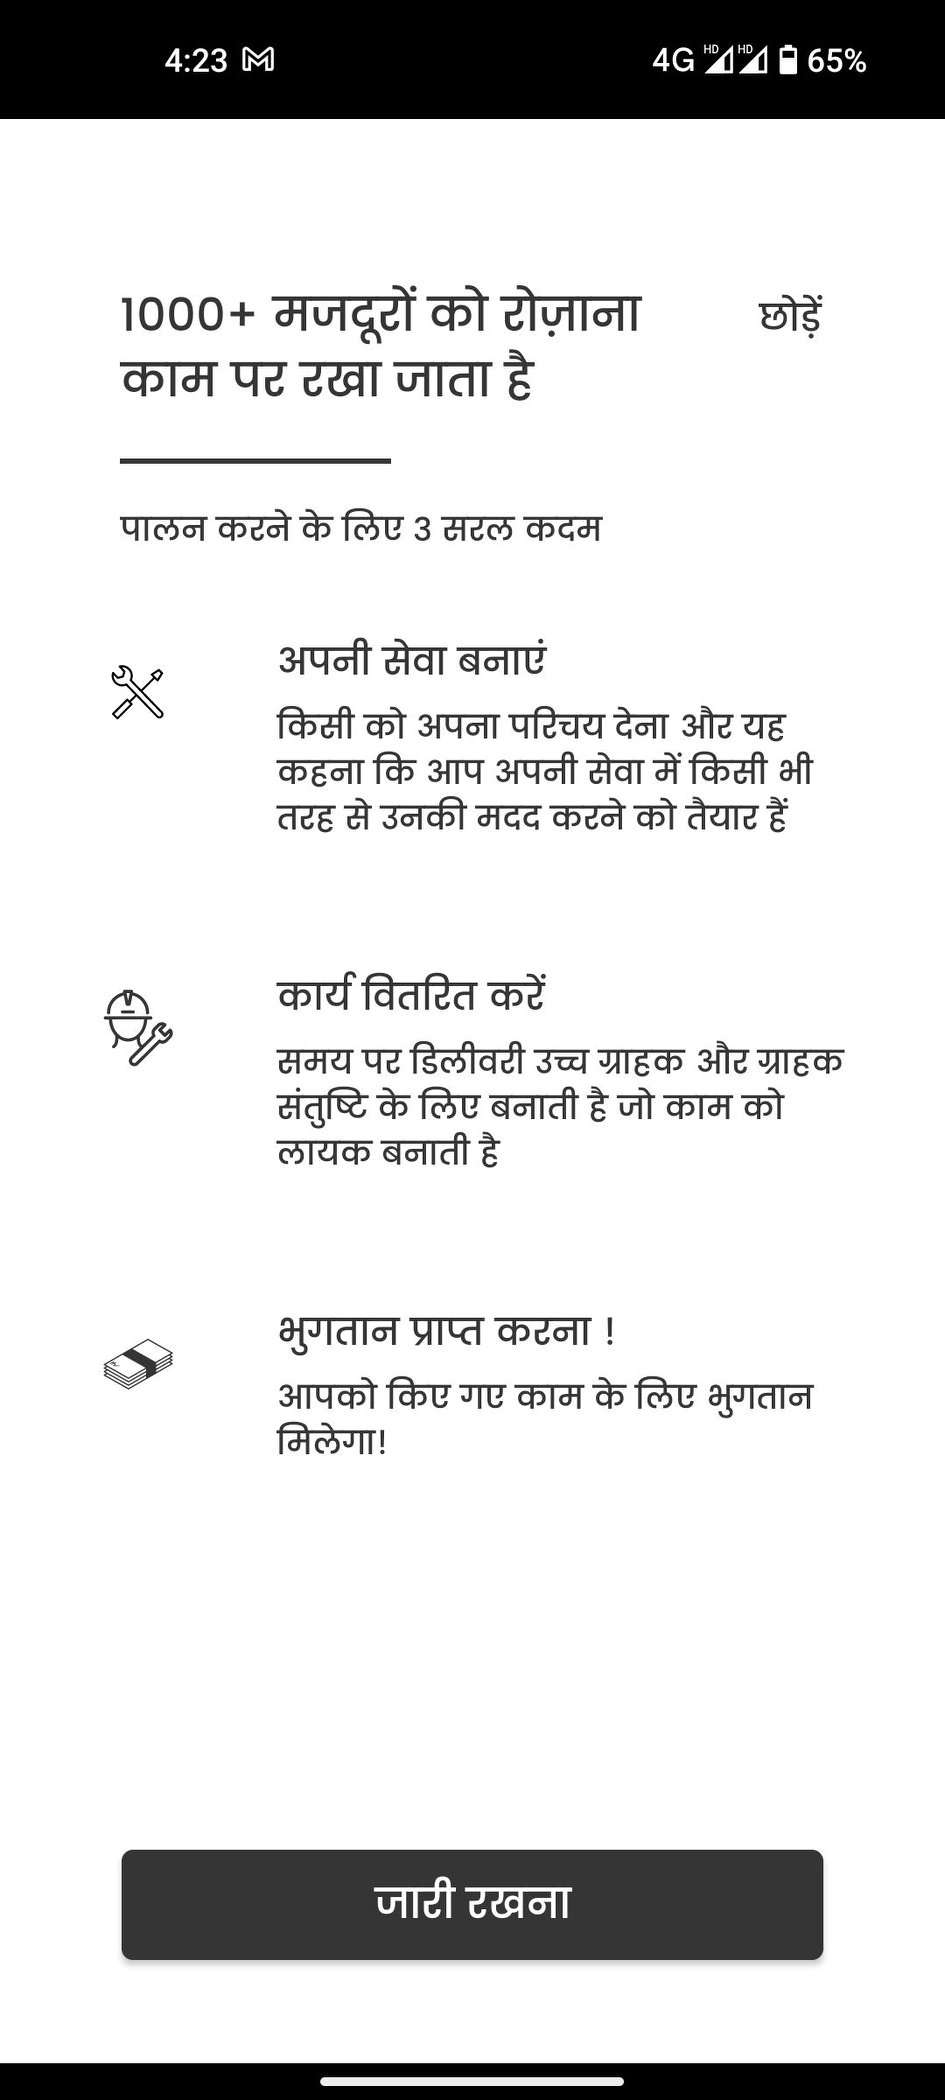 4:23
4G HD HD 65%
1000+ मजदूरों को रोज़ाना
काम पर रखा जाता है
छोड़ें
पालन करने के लिए 3 सरल कदम
अपनी सेवा बनाएं
किसी को अपना परिचय देना और यह
कहना कि आप अपनी सेवा में किसी भी
तरह से उनकी मदद करने को तैयार हैं
कार्य वितरित करें
समय पर डिलीवरी उच्च ग्राहक और ग्राहक
संतुष्टि के लिए बनाती है जो काम को
लायक बनाती है
भुगतान प्राप्त करना !
आपको किए गए काम के लिए भुगतान
मिलेगा!
जारी रखना